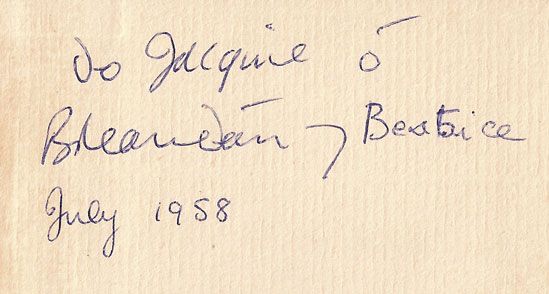 Do Jacquie ó
Breandán ⁊ Beatrice
July 1958